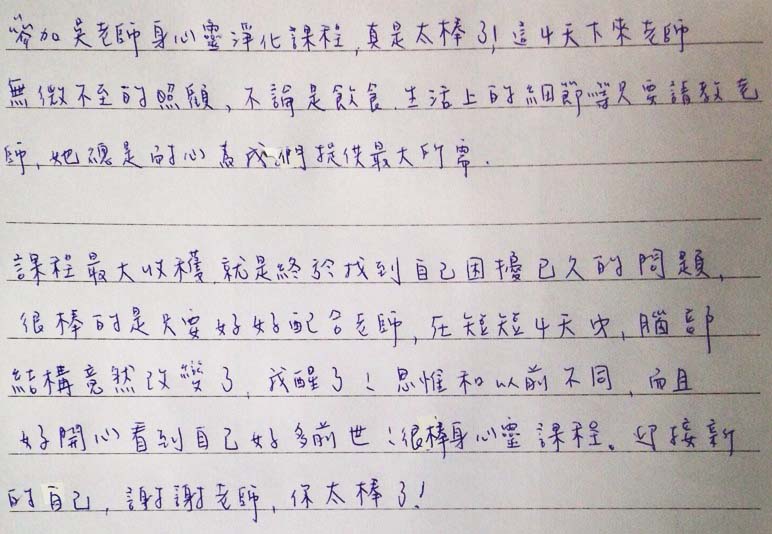 參加吳老師身心靈淨化課程,真是太棒了!這4天下來老師
無微不至的照顧、不論是飲食.生活上的細節等只要請教老
師,她總是耐心為我們提供最大所需.
課程最大收穫.就是終於找到自己困擾已久的問題,
很棒的是只要好好配合老師,在短短4天中,腦部
結構竟然改變了,我醒了!思惟和以前不同,而且
好開心看到自己好多前世!很棒身心靈課程。迎接新
的自己,謝謝老師,你太棒了!